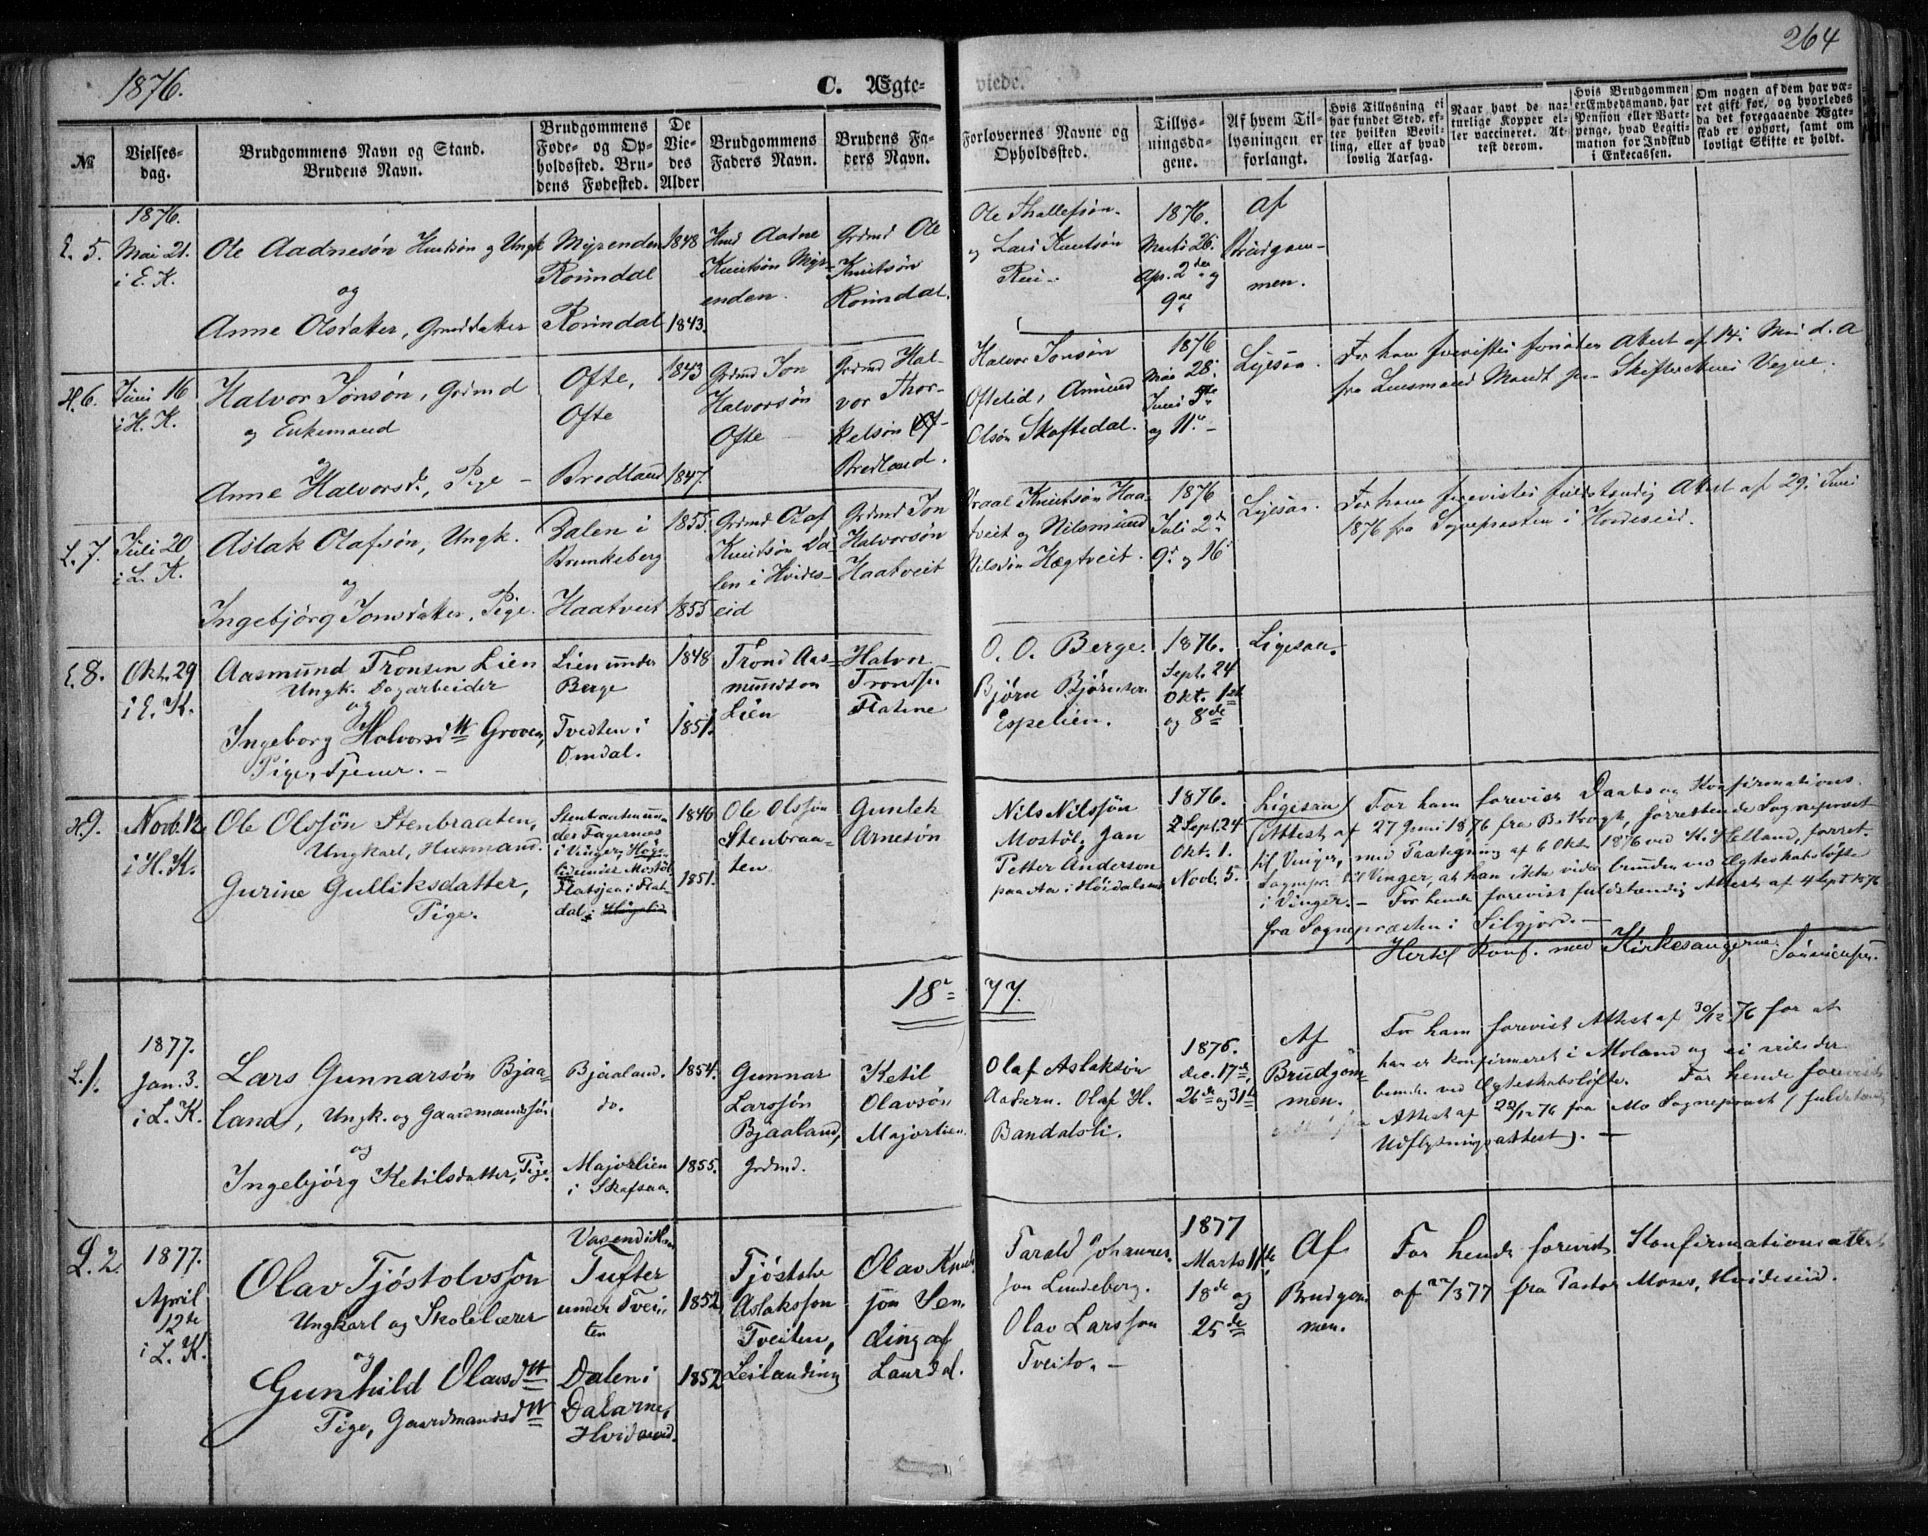 1876.
C. Ægte-
viede.
264
№
Vielses-
dag.
Brudgommens Navn og Stand.
Brudens Navn.
Brudgommens
Føde- og Op-
holdssted. Bru-
dens Fødested.
De
Vie-
des
Alder
Brudgommens
Faders Navn.
Brudens Fa-
ders Navn.
Forlovernes Navne og
Opholdssted.
Tillys-
ningsda-
gene.
Af hvem Til-
lysningen er
forlangt.
Hvis Tillysning ei
har fundet Sted, ef-
ter hvilken Bevil-
ling, eller af hvad
lovlig Aarsag.
Naar havt de na-
turlige Kopper el-
ler vaccineret. At-
test derom.
Hvis Brudgommen
er Embedsmand, har
Pension eller Vart-
penge, hvad Legiti-
mation for Indskud
i Enkecassen.
Om nogen af dem har væ-
ret gift før, og hvorledes
da det foregaaende Ægte-
skab er ophørt, samt om
lovligt Skifte er holdt.
E. 5.
1876.
Mai 21.
i E. K.
Ole Aadnesøn Huusøn og Ungk
og
Anne Olsdatter, Grmddatter
Myrenden
Romndal
Romndal
1848
1843.
Hmd Aadne
Knutsøn Myr-
enden.
Grdmd Ole
Knutsøn
Romndal.
Ole Thallefsøn
og Lars Knutsøn
1876.
Marts 26.
Apr. 2den og
9de
Af
Brudgom-
men.
H. 6.
Juni 16
i H. K.
Halvor Jonsøn, Grdmd
og Enkemand
og
Anne Halvorsd., Pige
Ofte,
Ofte
Bredland
1843
1847.
Grdmd Jon
Halvorsøn
Ofte
Grdmd Hal-
vor Thor-
kelsøn
Bredland.
Halvor Jonsøn
Oftelid, Amund
Olsøn Skaftedal.
1876
Mai 28.
Juni 5te
og 11.
Ligesaa.
For ham forevistes Attest af 14. Mai d. A
fra Lensmand Mandt paa Skifterettens Vegne.
L. 7.
Juli 20
i L. K.
Aslak Olafsøn, Ungk.
og
Ingebjørg Jonsdatter, Pige.
Dalen i
Brunkeberg
Haatveit
1855.
1855
Grdmd Olaf
Knutsøn Da-
len i Hvides-
eid
Grdmd Jon
Halvorsøn
Haatveit
Knutsøn Haa-
tveit og Nilsmund
Nilssøn Hægtveit.
1876
Juli 2d
9. og 16
Ligesaa.
For ham forevistes fuldstændig Attest af 29. Juni
1876 fra Sognepresten i Hvideseid.
E. 8.
Okt. 29
i E. K.
Aasmund Tronsen Lien
Ungk. Dagarbeider
og
Ingeborg Halvorsdtt Groven,
Pige, Tjener. -
Lien under
Berge
Tvedten i
Omdal.
1848
1851.
Trond Aas-
mundson
Lien
Halvor
Tronds.
Flatine
O. O. Berge.
Bjørn Bjørnsen
Espelien.
1876.
Sept. 24
Okt. 1st
og 8de
Ligesaa.
H. 9.
Novb. 12
i H. K.
Ole Olssøn Stenbraaten,
Ungkarl, Husmand.
Gurine Gulliksdatter,
Pige.
Stenbraaten un-
der Fagernæs
i Vinger, Høge-
lid under Mostøl
Flatsjøen i Flat-
dal i Høgelid
1846
1851.
Ole Olsson
Stenbraa-
ten
Gunlek
Arnesøn
Nils Nilssøn
Mostøl, Jan
Petter Anderson
paa Aa i Høidalsmo
1876.
Sept. 24
Okt. 1.
Novb. 5.
Ligesaa
For ham forevist Daabs og Konfirmations
Attest af 27 Juni 1876 fra B. Kogh, forrettende Sogneprest
til Vinger, med Paategning af 6 Okt. 1876 ved K. Helland, forret.
Sognepr. til Vinger, at han ikke vides bunden ved Ægteskabsløfte
i Vinger. - For hende forevist fuldstændig Attest af 4 Sept 1876
fra Sognepræsten i Silgjord. -
Hertil Konf. med Kirkesangerne.
18 77.
L. 1.
1877.
Jan. 3.
i L. K.
Lars Gunnarsøn Bjaa-
land, Ungk. og Gaardmandssøn
og
Ingebjørg Ketilsdatter, Pige.
Bjaaland.
do.
Majorlien
i Skafsaa.
1854.
1855.
Gunnar
Larssøn
Bjaaland,
Grdmd.
Ketil
Olavsøn
Majorlien
Olaf Aslaksøn
Olaf H.
Bandaksli.
1876.
Dec. 17d,
26de og 31te
Af
Brudgom-
men.
For ham forevist Attest af 30/12 76 for at
han er konfirmeret i Moland og ei vides
bunden ved Ægteskabsløfte. For hende forevist
Attest af 22/12 76 fra Mo Sogneprest (fuldstændig
Udflytningsattest). -
L. 2.
1877.
April
12te
i L. K.
Olav Tjøstolvsson
Ungkarl og Skolelærer
og
Gunhild Olavsdtt
Pige, Gaardmandsdtt
Tufter
under Tvei-
ten
Dalen i
Dalarne,
Hvideseid.
1852
1852
Tjøstolv
Aslaksson
Tveiten,
Leilænding
Olav Knud-
son Len-
ding af
Laurdal.
Tarald Johannes-
son Lundeberg.
Olav Larsson
Tveito. -
1877
Marts 11te,
18de og
25de
Af
Brudgom-
men.
For hende forevist Konfirmationsattest
af 22/3 77 fra Pastor Moses, Hvideseid.